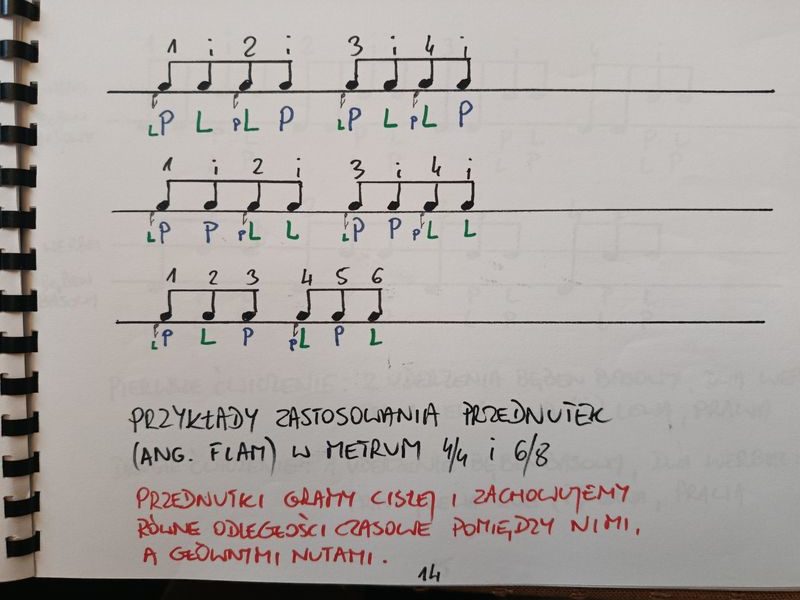 1 i 2 i 3 i 4 i
LP L PL P LP L PL P
1 i 2 i 3 i 4 i
LP P PL L LP P PL L
1 2 3 4 5 6
LP L P PL P L
PRZYKŁADY ZASTOSOWANIA PRZEDNUTEK
(ANG. FLAM) W METRUM 4/4 i 6/8
PRZEDNUTKI GRAMY CISZEJ I ZACHOWUJEMY
RÓWNE ODLEGŁOŚCI CZASOWE POMIĘDZY NIMI,
A GŁÓWNYMI NUTAMI.
14